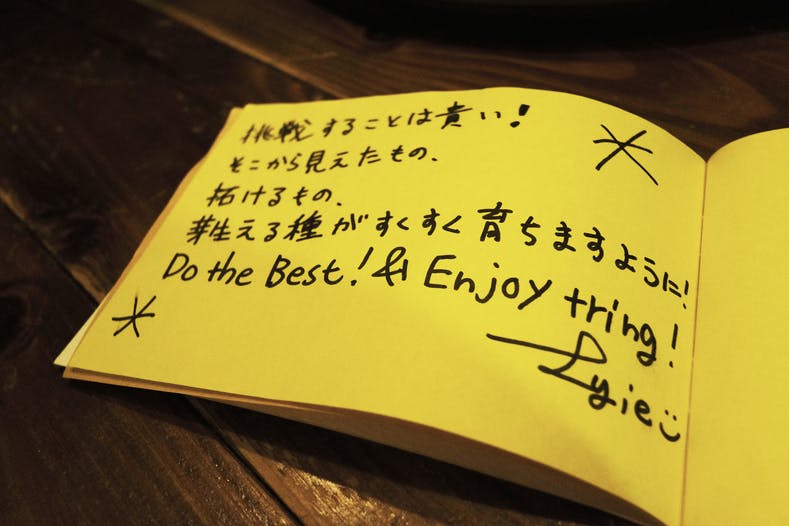 挑戦することは貴い!
そこから見えたもの、
拓けるもの、
芽生える種がすくすく育ちますように!
Do the Best! & Enjoy tring!
Lyie